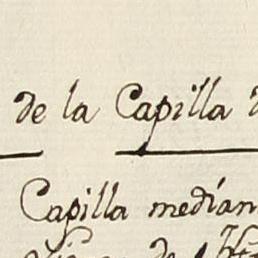 de la Capilla
Capilla median
de